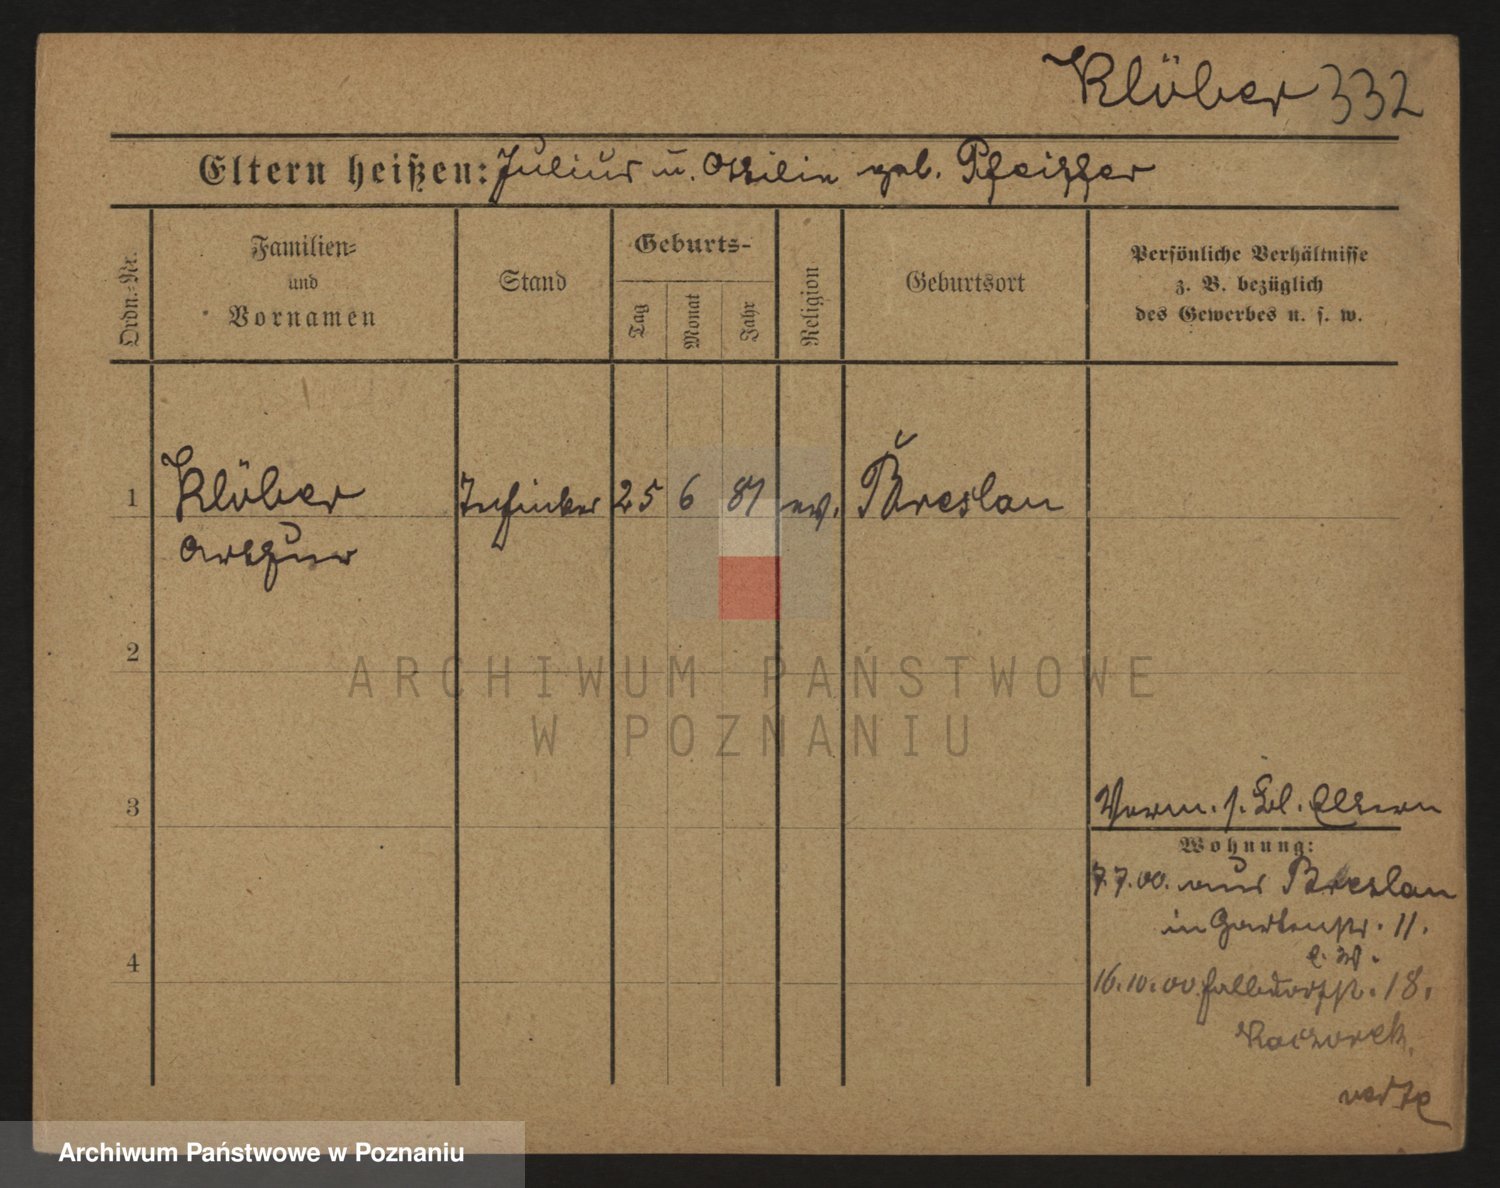 Klöber 332
Eltern heißen: Julius u. Ottilie geb. Pfeiffer
Ordn.=Nr.
Familien=
und
Vornamen
Stand
Geburts-
Tag
Monat
Jahr
Religion
Geburtsort
Persönliche Verhältnisse
z. B. bezüglich
des Gewerbes u. s. w.
1 Klöber 25 6 87 ev. Breslau
Arthur
2
3
4
Verm. s. Bl. Eltern
Wohnung:
7.7.00. aus Breslau
in Gartenstr. 11.
16.10.00 Halbdorfstr. 18.
Kaczorek.
ARCHIWUM PAŃSTWOWE
W POZNANIU
Archiwum Państwowe w Poznaniu